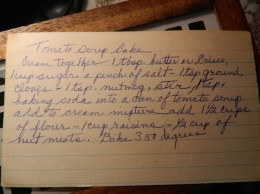 Tomato Soup Cake
Cream together 1 tbsp. butter or Crisco,
1 cup sugar a pinch of salt - 1 tsp ground
cloves - 1 tsp. nutmeg, stir 1 tsp.
baking soda into a can of tomato soup
add to cream mixture add 1½ cups
of flour - 1 cup raisins - ½ cup of
nut meats. Bake 350 degrees